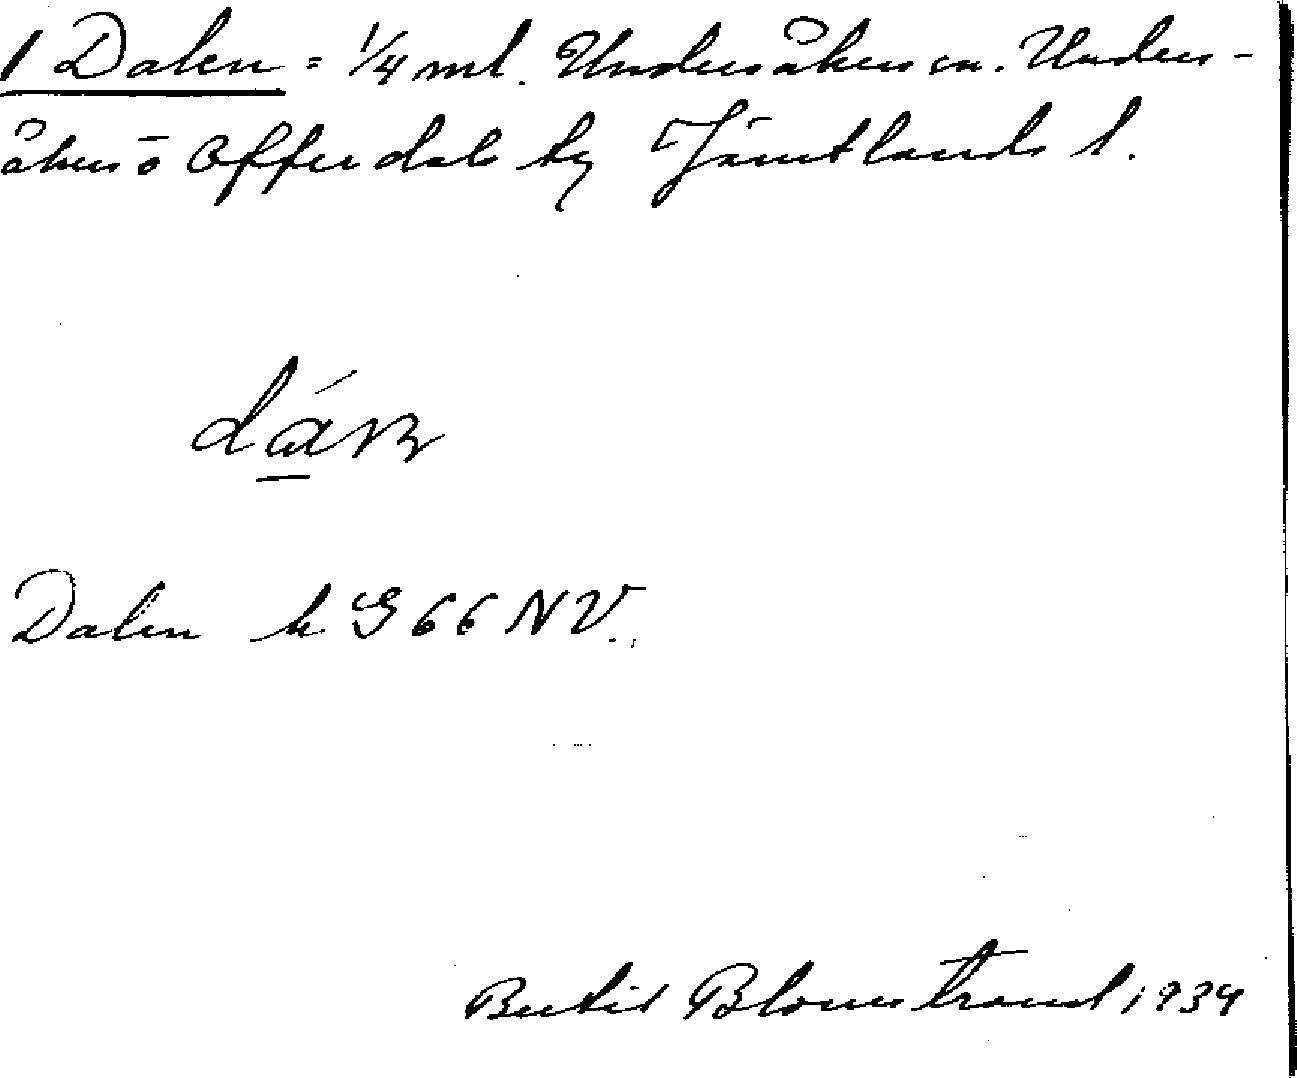 1 Dalen = 1/4 mtl. Undersåkers sn. Unders-
åkers o Offerdals tg Jämtlands l.
Dalen h G 66 NV.
Bertil Blomstrand 1934